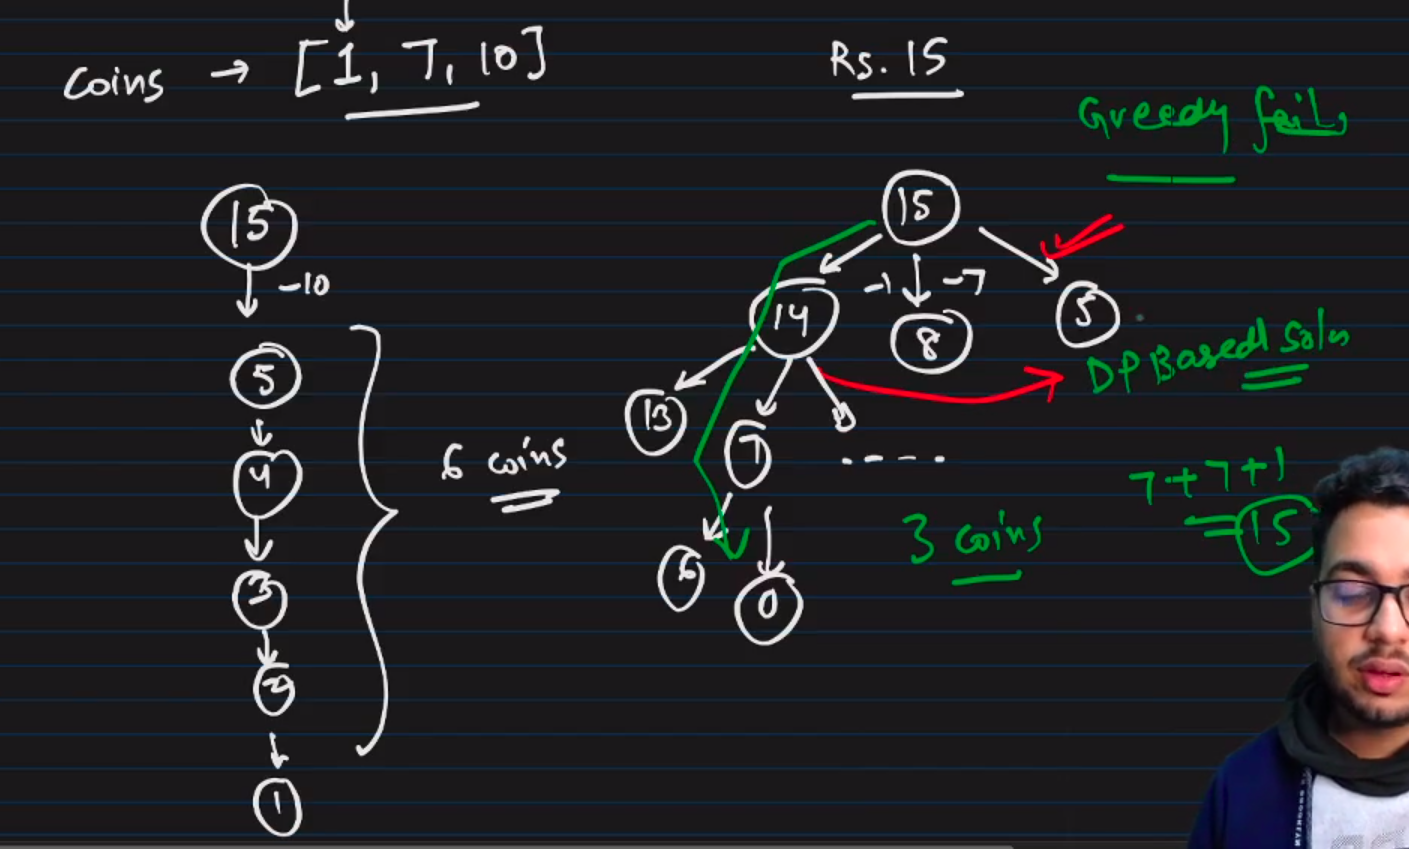 Coins → [1, 7, 10]
Rs. 15
Greedy fails
15
-10
5
4
3
2
1
6 coins
15
-1 -7
14 8 5
DP Based Soln
13 7
----
7+7+1
= 15
3 coins
6 0